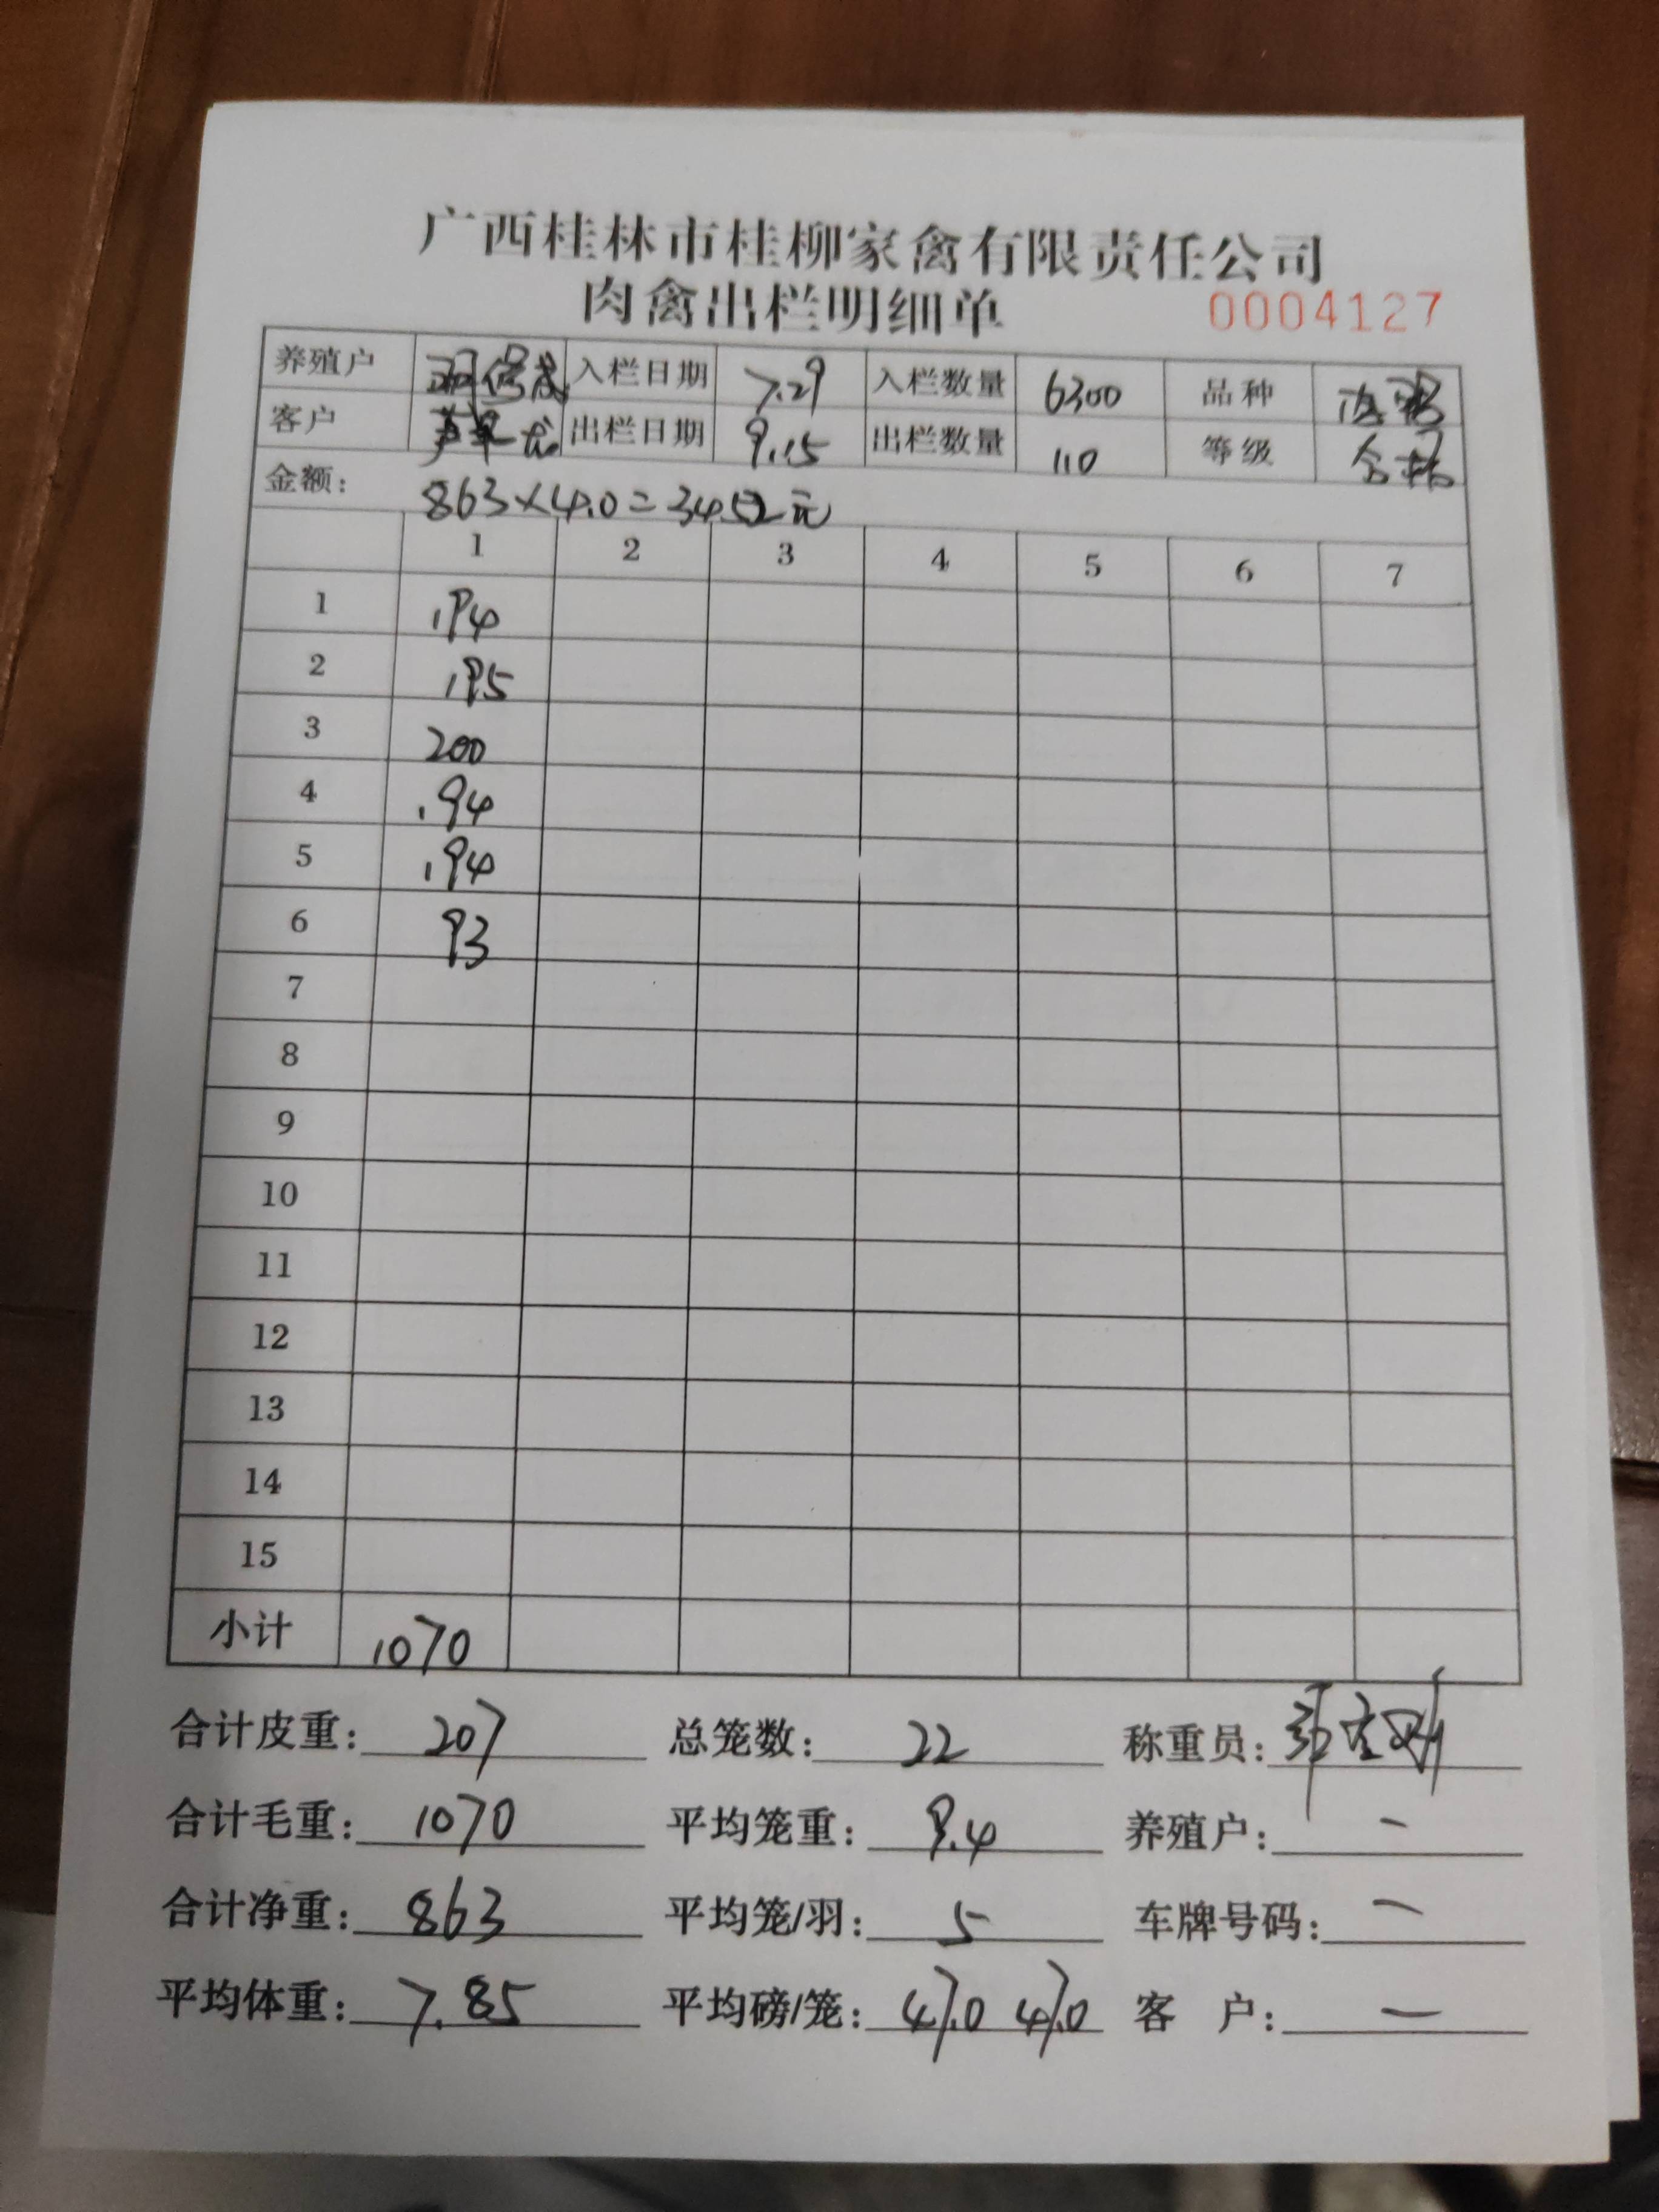 广西桂林市桂柳家禽有限责任公司
肉禽出栏明细单 0004127
养殖户 入栏日期 7.29 入栏数量 6300 品种
客户 出栏日期 9.15 出栏数量 110 等级 合格
金额: 863×4.0=3452元
1 2 3 4 5 6 7
1 194
2 195
3 200
4 194
5 194
6 93
7
8
9
10
11
12
13
14
15
小计 1070
合计皮重: 207 总笼数: 22 称重员:
合计毛重: 1070 平均笼重: 9.4 养殖户: 一
合计净重: 863 平均笼/羽: 5 车牌号码: 一
平均体重: 7.85 平均磅/笼: 47.0 47.0 客 户: 一